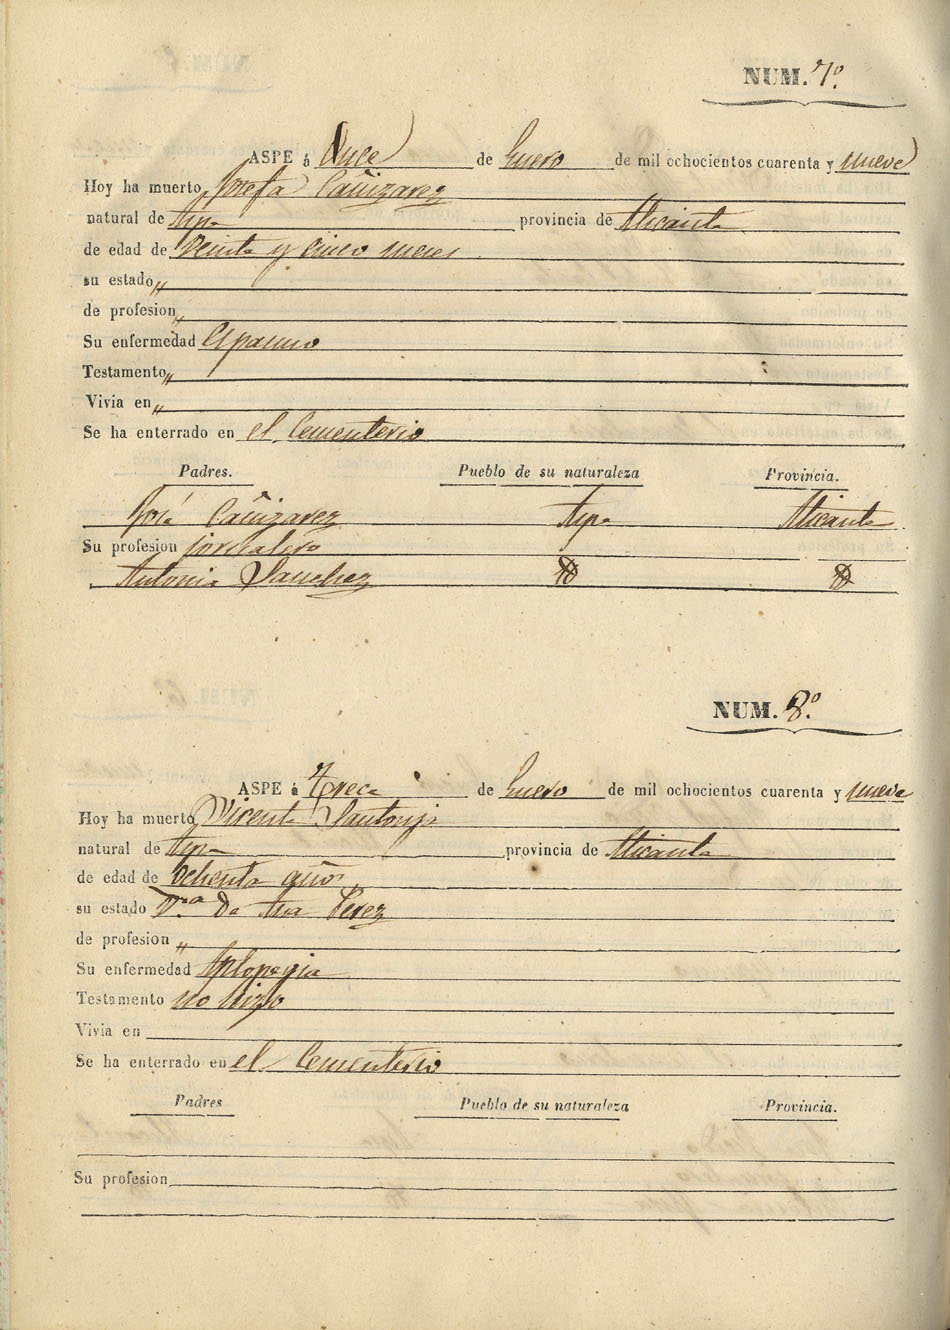 NUM. 7º
ASPE á Once de Enero de mil ochocientos cuarenta y nueve
Hoy ha muerto Josefa Cañizarez
natural de Aspe provincia de Alicante
de edad de Veinte y cinco meses
su estado „
de profesion „
Su enfermedad Espasmo
Testamento „
Vivia en „
Se ha enterrado en el Cementerio
Padres. Pueblo de su naturaleza Provincia.
José Cañizarez Aspe Alicante
Su profesion jornalero
Antonia Sanchez
NUM. 8º
ASPE á Trece de Enero de mil ochocientos cuarenta y nueve
Hoy ha muerto Vicente
natural de Aspe provincia de Alicante
de edad de Ochenta años
su estado de Ana Perez
de profesion „
Su enfermedad Aplopegia
Testamento no hizo
Vivia en
Se ha enterrado en el Cementerio
Padres Pueblo de su naturaleza Provincia.
Su profesion